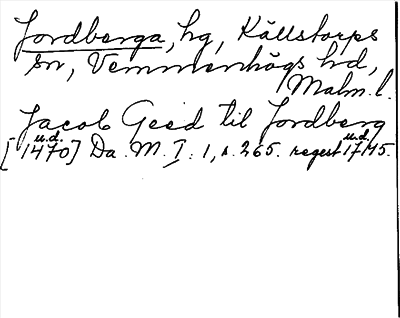 Jordberga, hg, Källstorps
sn, Vemmenhögs hd,
Malm. l.
Jacob Geed til Jordberg
[u.d. 1470] Da. M. I: 1, s. 265. regest u.d. 1745.